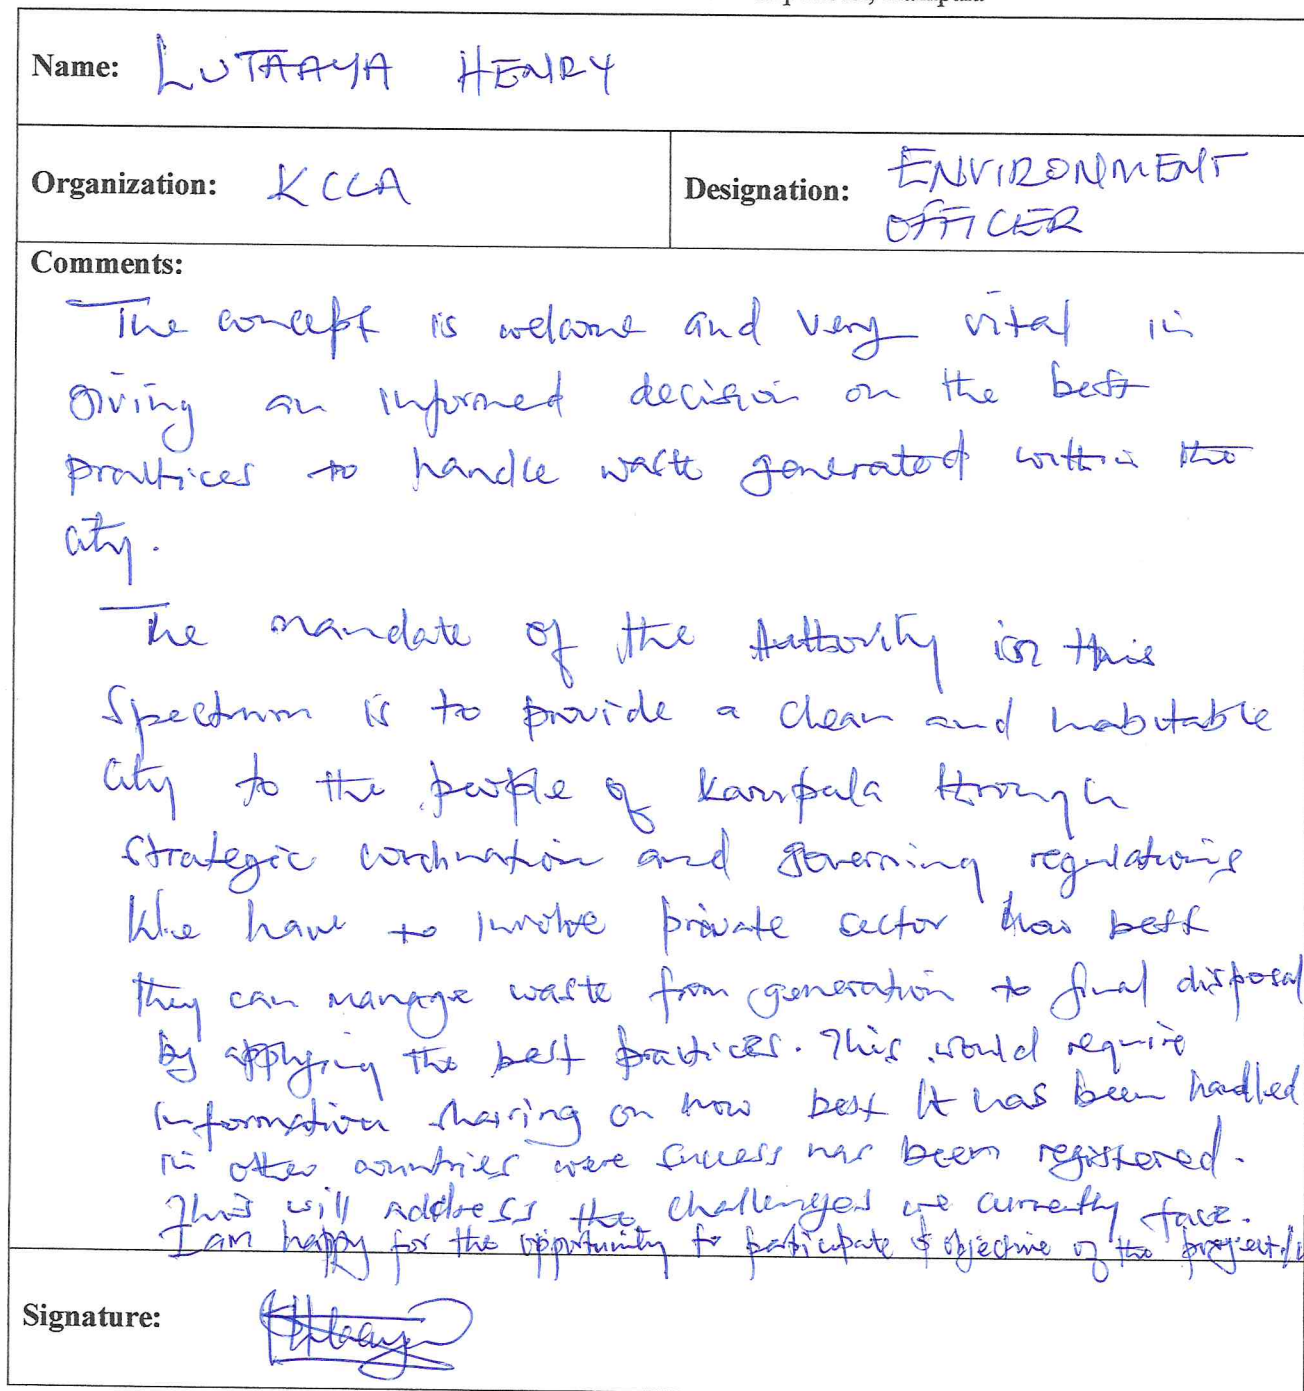 Name: LUTAAYA HENRY
Organization: KCCA
Designation: ENVIRONMENT
OFFICER
Comments:
The concept is welcome and very vital in
giving an informed decision on the best
practices to handle waste generated within the
city.
The mandate of the Authority in this
Spectrum is to provide a clean and habitable
city to the people of Kampala through
strategic cordination and governing regulations
We have to involve private sector how best
they can manage waste from generation to final disposal
by applying the best practices. This would require
information sharing on how best it has been handled
in other countries were success has been registered.
This will address the challenges we currently face.
I am happy for the opportunity to participate & objective of the project
Signature: